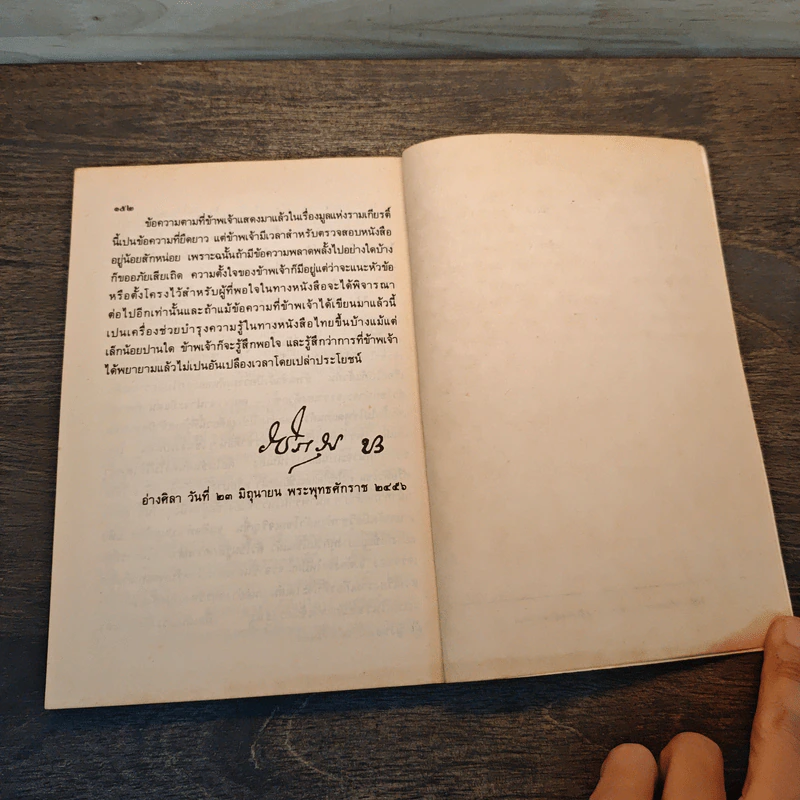 ๑๕๒
ข้อความตามที่ข้าพเจ้าแสดงมาแล้วในเรื่องมูลแห่งรามเกียรติ์
นี้เปนข้อความที่ยืดยาว แต่ข้าพเจ้ามีเวลาสำหรับตรวจสอบหนังสือ
อยู่น้อยสักหน่อย เพราะฉนั้นถ้ามีข้อความพลาดพลั้งไปอย่างใดบ้าง
ก็ขออภัยเสียเถิด ความตั้งใจของข้าพเจ้าก็มีอยู่แต่ว่าจะแนะหัวข้อ
หรือตั้งโครงไว้สำหรับผู้ที่พอใจในทางหนังสือจะได้พิจารณา
ต่อไปอีกเท่านั้นและถ้าแม้ข้อความที่ข้าพเจ้าได้เขียนมาแล้วนี้
เปนเครื่องช่วยบำรุงความรู้ในทางหนังสือไทยขึ้นบ้างแม้แต่
เล็กน้อยปานใด ข้าพเจ้าก็จะรู้สึกพอใจ และรู้สึกว่าการที่ข้าพเจ้า
ได้พยายามแล้วไม่เปนอันเปลืองเวลาโดยเปล่าประโยชน์
อ่างศิลา วันที่ ๒๓ มิถุนายน พระพุทธศักราช ๒๔๕๖